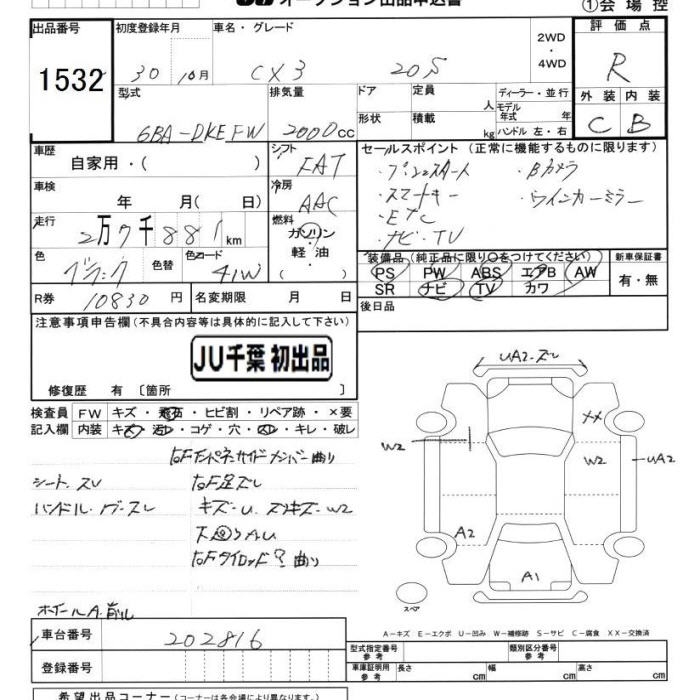 オークション出品申込書 ①会場控
出品番号 初度登録年月 車名・グレード 2WD・4WD 評価点
1532 30 10月 CX3 20S R
型式 排気量 ドア 定員 人 ディーラー・並行 外装 内装
6BA-DKEFW 2000cc 形状 積載 kg モデル年式 年 ハンドル 左・右 C B
車歴 自家用・( ) シフト FAT セールスポイント (正常に機能するものに限ります)
・プッシュスタート ・Bカメラ
車検 年 月( 日) 冷房 AAC ・スマートキー ・ウインカーミラー
・ETC
走行 2万7千881km 燃料 ガソリン・軽油・( ) ・ナビ・TV
色 ブラック 色替 色コード 41W 装備品(純正品に限り○をつけてください) 新車保証書
PS PW ABS エアB AW 有・無
SR ナビ TV カワ
R券 10830円 名変期限 月 日 後日品
注意事項申告欄(不具合内容等は具体的に記入して下さい)
JU千葉 初出品
修復歴 有 [箇所 ]
検査員 FW キズ・飛石・ヒビ割・リペア跡・×要
記入欄 内装 キズ・汚レ・コゲ・穴・スレ・キレ・破レ
曲り
シート.スレ 右F足ズレ
ハンドル. キズ・U. W2
右Fタイロッド? 曲り
ホイールA.削ル
UA2.ズレ
××
W2
W2
UA2
A2
A1
スペア
A-キズ E-エクボ U-凹み W-補修跡 S-サビ C-腐食 XX-交換済
車台番号 202816
型式指定番号 参考 類別区分番号 参考
登録番号 車庫証明用 参考 長さ cm 幅 cm 高さ cm
希望出品コーナー(コーナーは各会場により異なります。)